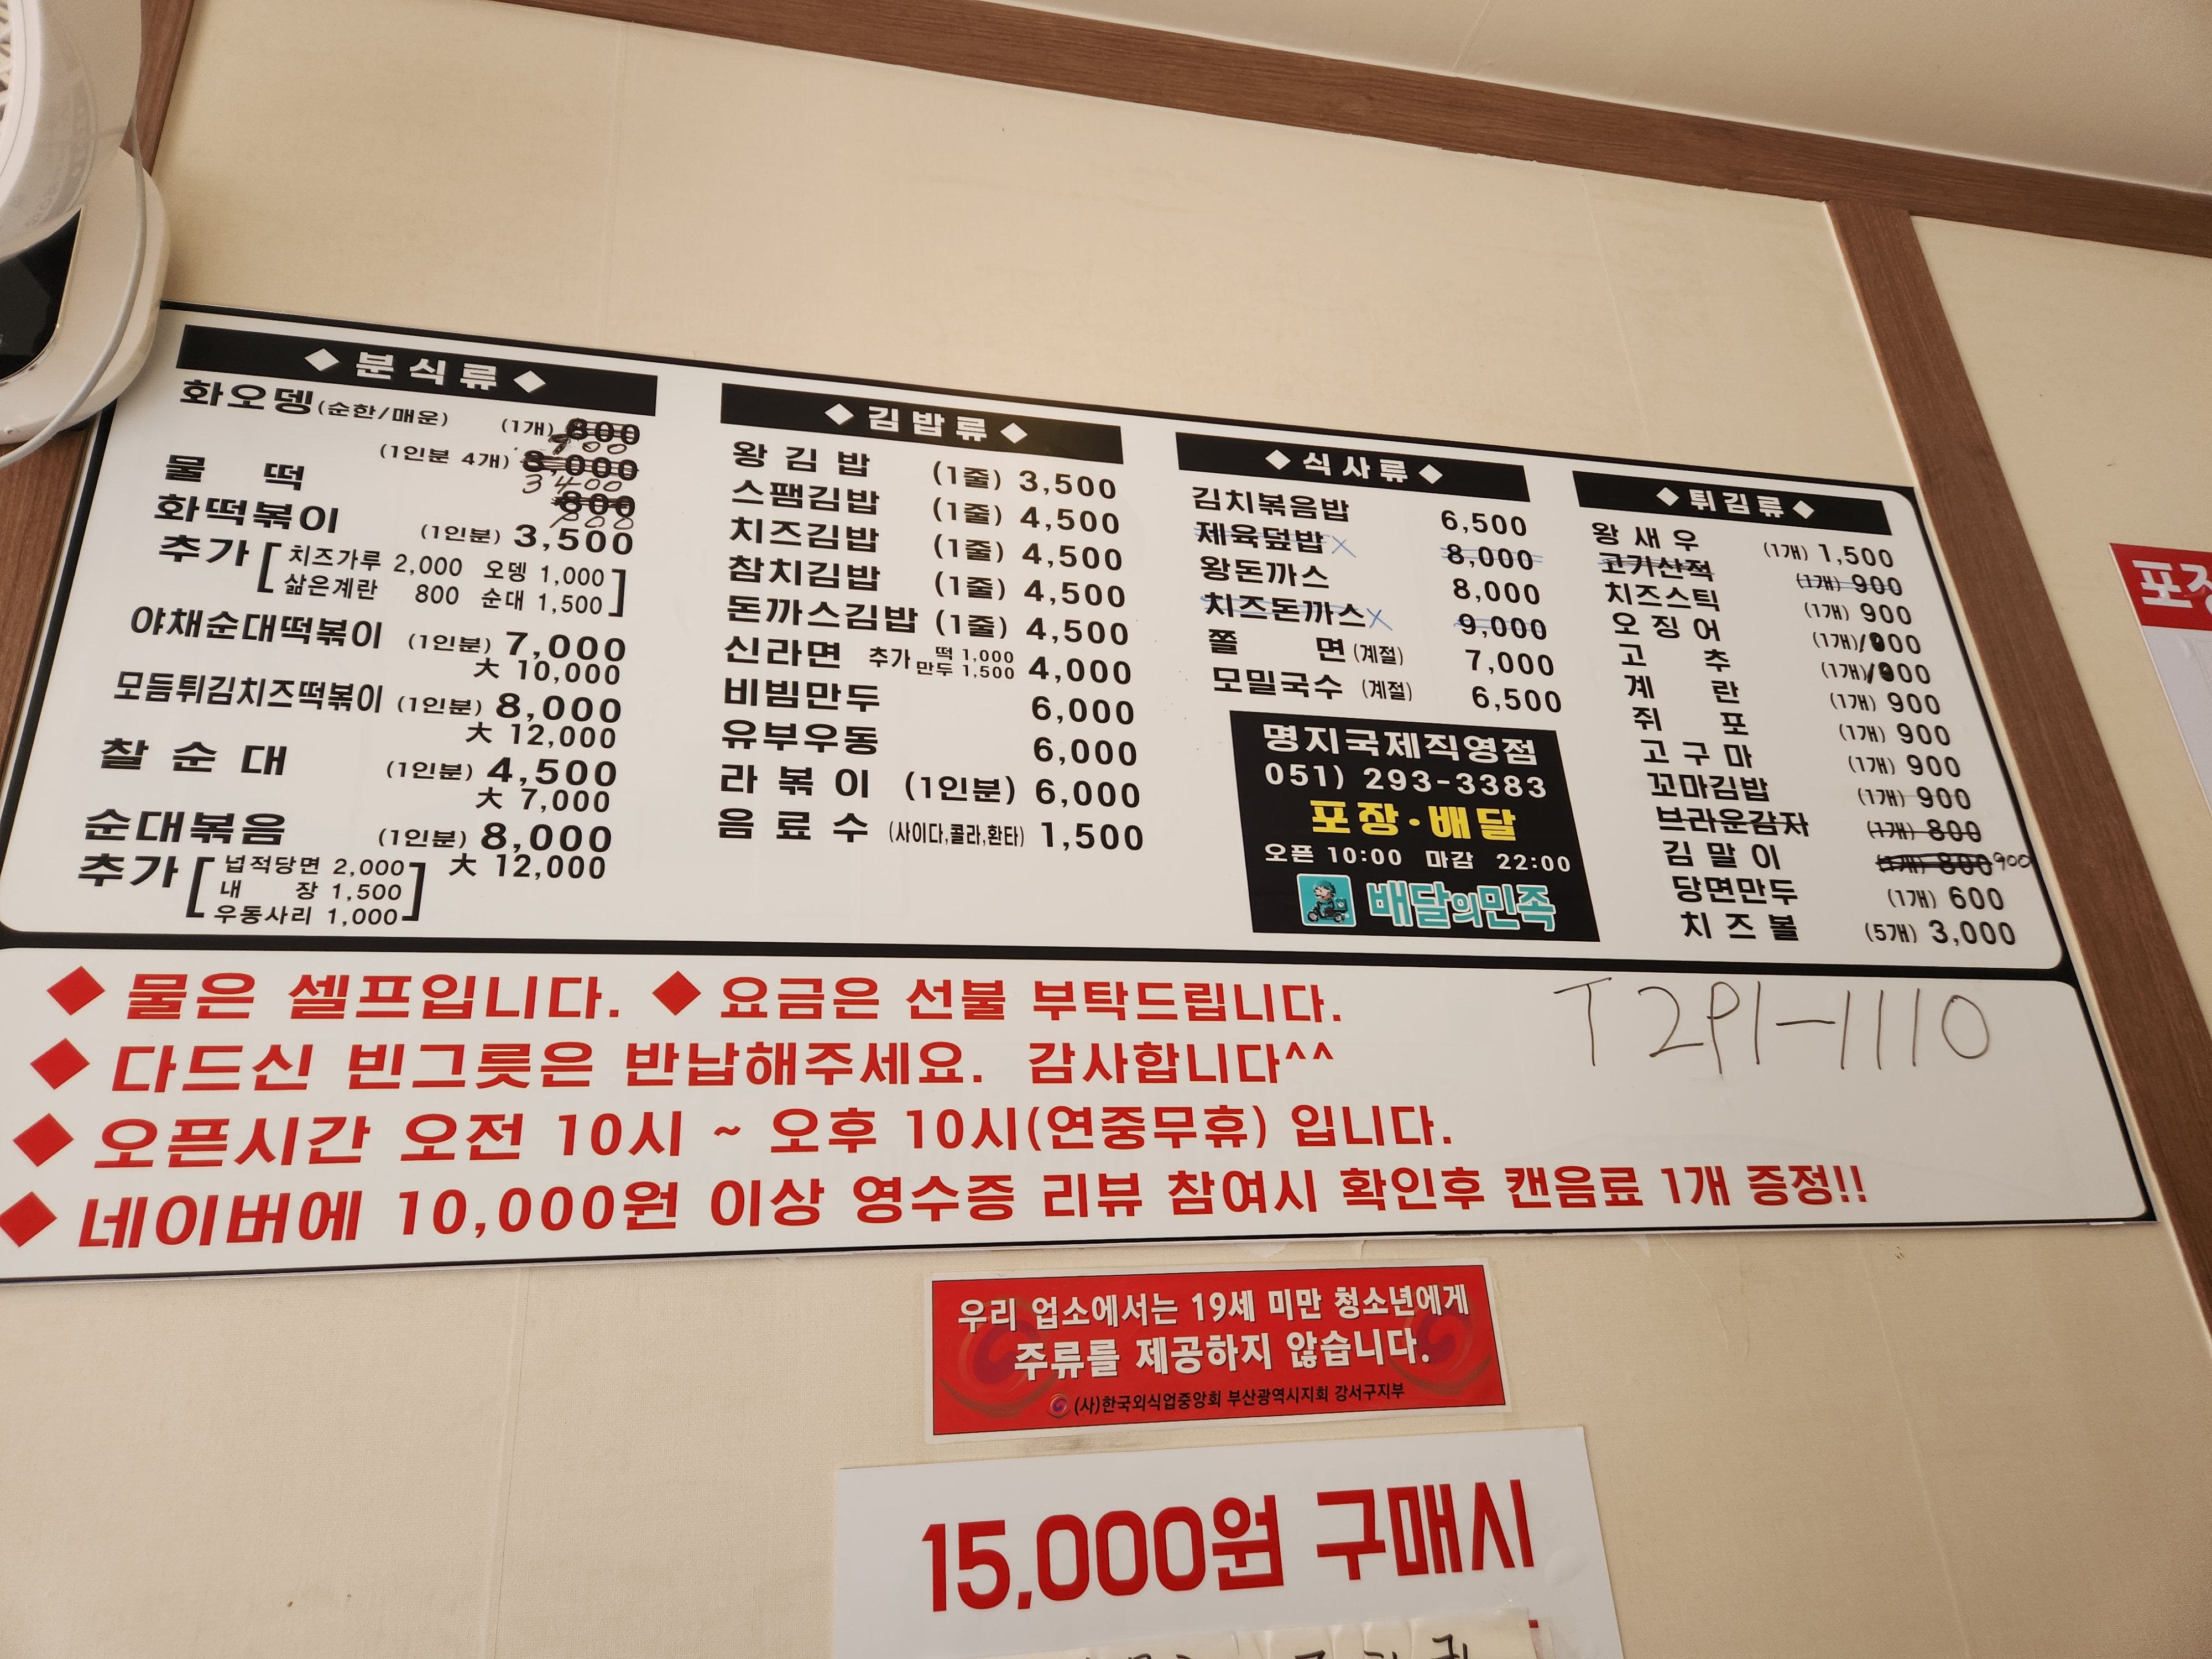 ◆ 분식류 ◆
화오뎅(순한/매운) (1개) 800
900
(1인분 4개) 3,000
3400
물 떡 800
화떡볶이 (1인분) 3,500
추가 [치즈가루 2,000 오뎅 1,000
삶은계란 800 순대 1,500]
야채순대떡볶이 (1인분) 7,000
大 10,000
모듬튀김치즈떡볶이 (1인분) 8,000
大 12,000
찰순대 (1인분) 4,500
大 7,000
순대볶음 (1인분) 8,000
大 12,000
추가 [넙적당면 2,000
내 장 1,500
우동사리 1,000]
◆ 김밥류 ◆
왕김밥 (1줄) 3,500
스팸김밥 (1줄) 4,500
치즈김밥 (1줄) 4,500
참치김밥 (1줄) 4,500
돈까스김밥 (1줄) 4,500
신라면 추가 떡 1,000 만두 1,500 4,000
비빔만두 6,000
유부우동 6,000
라볶이 (1인분) 6,000
음료수 (사이다,콜라,환타) 1,500
◆ 식사류 ◆
김치볶음밥 6,500
제육덮밥 8,000
왕돈까스 8,000
치즈돈까스 9,000
쫄 면 (계절) 7,000
모밀국수 (계절) 6,500
명지국제직영점
051) 293-3383
포장·배달
오픈 10:00 마감 22:00
배달의민족
◆ 튀김류 ◆
왕새우 (1개) 1,500
고기산적 (1개) 900
치즈스틱 (1개) 900
오징어 (1개) 1000
고 추 (1개) 1000
계 란 (1개) 900
쥐 포 (1개) 900
고구마 (1개) 900
꼬마김밥 (1개) 900
브라운감자 (1개) 800
김말이 (1개) 800 900
당면만두 (1개) 600
치즈볼 (5개) 3,000
◆ 물은 셀프입니다. ◆ 요금은 선불 부탁드립니다.
T 2P1-1110
◆ 다드신 빈그릇은 반납해주세요. 감사합니다^^
◆ 오픈시간 오전 10시 ~ 오후 10시(연중무휴) 입니다.
◆ 네이버에 10,000원 이상 영수증 리뷰 참여시 확인후 캔음료 1개 증정!!
우리 업소에서는 19세 미만 청소년에게
주류를 제공하지 않습니다.
(사)한국외식업중앙회 부산광역시지회 강서구지부
15,000원 구매시